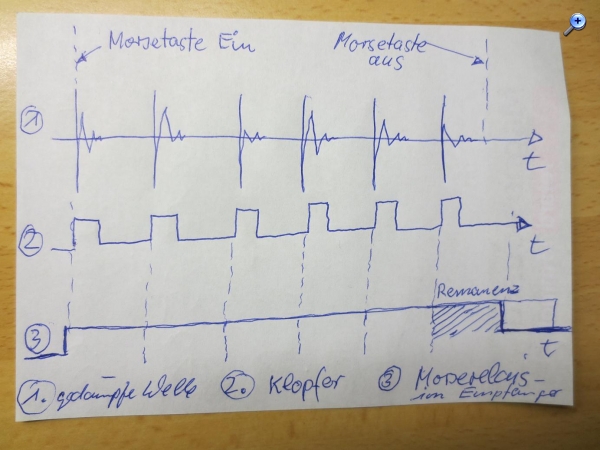 Morsetaste Ein
Morsetaste
aus
1
t
2
t
Remanenz
3
t
1. gedämpfte Welle 2. Klopfer 3 Morserelais
im Empfänger